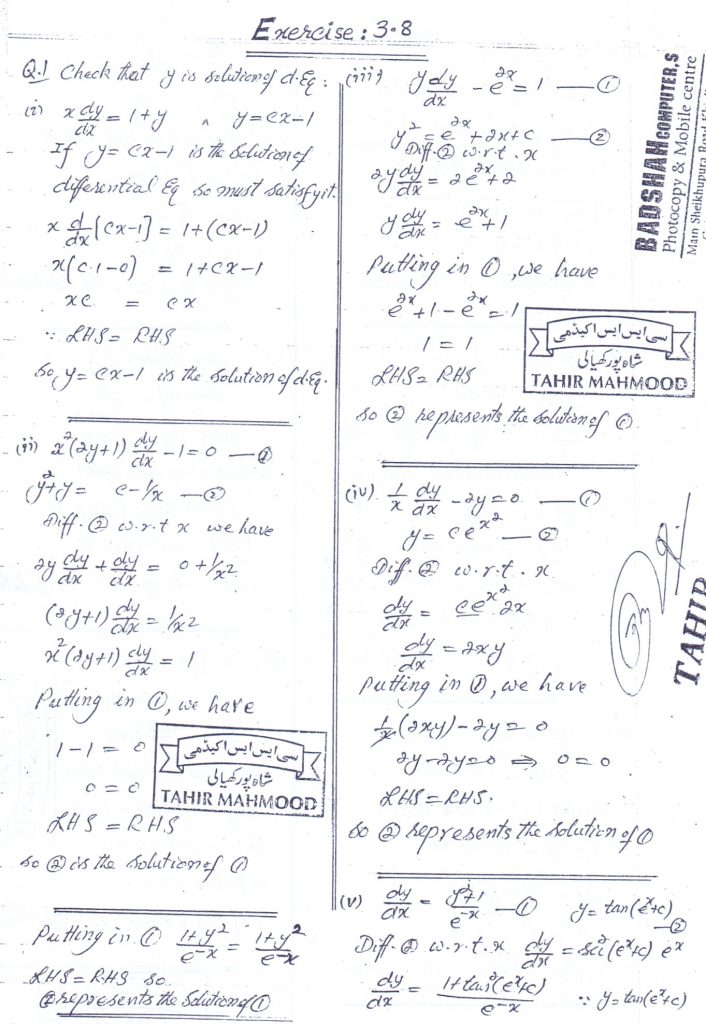 Exercise: 3.8
Q.1 Check that y is solution of d.Eq:
(i) x dy/dx = 1+y ∧ y = cx-1
If y = cx-1 is the solution of
differential Eq so must satisfy it.
x d/dx [cx-1] = 1+(cx-1)
x(c.1-0) = 1+cx-1
xc = cx
∵ LHS = RHS
so, y = cx-1 is the solution of d.Eq.
(ii) x²(2y+1) dy/dx -1 = 0 — ①
y²+y = c-1/x — ②
Diff. ② w.r.t x we have
2y dy/dx + dy/dx = 0+1/x²
(2y+1) dy/dx = 1/x²
x²(2y+1) dy/dx = 1
Putting in ①, we have
1-1 = 0
0 = 0
LHS = RHS
so ② is the solution of ①
سی ایس ایس اکیڈمی
شاہ پور کھیالی
TAHIR MAHMOOD
(iii) y dy/dx - e^2x = 1 — ①
y² = e^2x + 2x+c — ②
Diff. ② w.r.t. x
2y dy/dx = 2e^2x+2
y dy/dx = e^2x+1
Putting in ①, we have
e^2x+1-e^2x = 1
1 = 1
LHS = RHS
so ② represents the solution of ①
سی ایس ایس اکیڈمی
شاہ پور کھیالی
TAHIR MAHMOOD
(iv) 1/x dy/dx - 2y = 0 — ①
y = ce^x² — ②
Diff. ② w.r.t. x
dy/dx = ce^x² 2x
dy/dx = 2xy
Putting in ①, we have
1/x (2xy)-2y = 0
2y-2y=0 ⇒ 0=0
LHS = RHS.
so ② represents the solution of ①
(v) dy/dx = y²+1/e^-x — ① y = tan(e^x+c) — ②
Diff. ② w.r.t. x dy/dx = sec²(e^x+c) e^x
dy/dx = 1+tan²(e^x+c)/e^-x ∵ y = tan(e^x+c)
Putting in ① 1+y²/e^-x = 1+y²/e^-x
LHS = RHS so
② represents the solution of ①
BADSHAH COMPUTER,S
Photocopy & Mobile centre
Main Sheikhupura Road
TAHIR